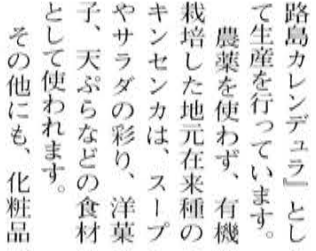 路島カレンデュラ』とし
て生産を行っています。
農薬を使わず、有機
栽培した地元在来種の
キンセンカは、スープ
やサラダの彩り、洋菓
子、天ぷらなどの食材
として使われます。
その他にも、化粧品